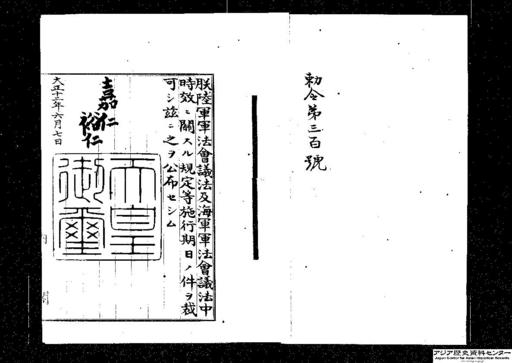 勅令第三百號
朕陸軍軍法會議法及海軍軍法會議法中
時效ニ關スル規定等施行期日ノ件ヲ裁
可シ茲ニ之ヲ公布セシム
嘉仁
裕仁
天皇御璽
大正十二年六月七日
アジア歴史資料センター
Japan Center for Asian Historical Records